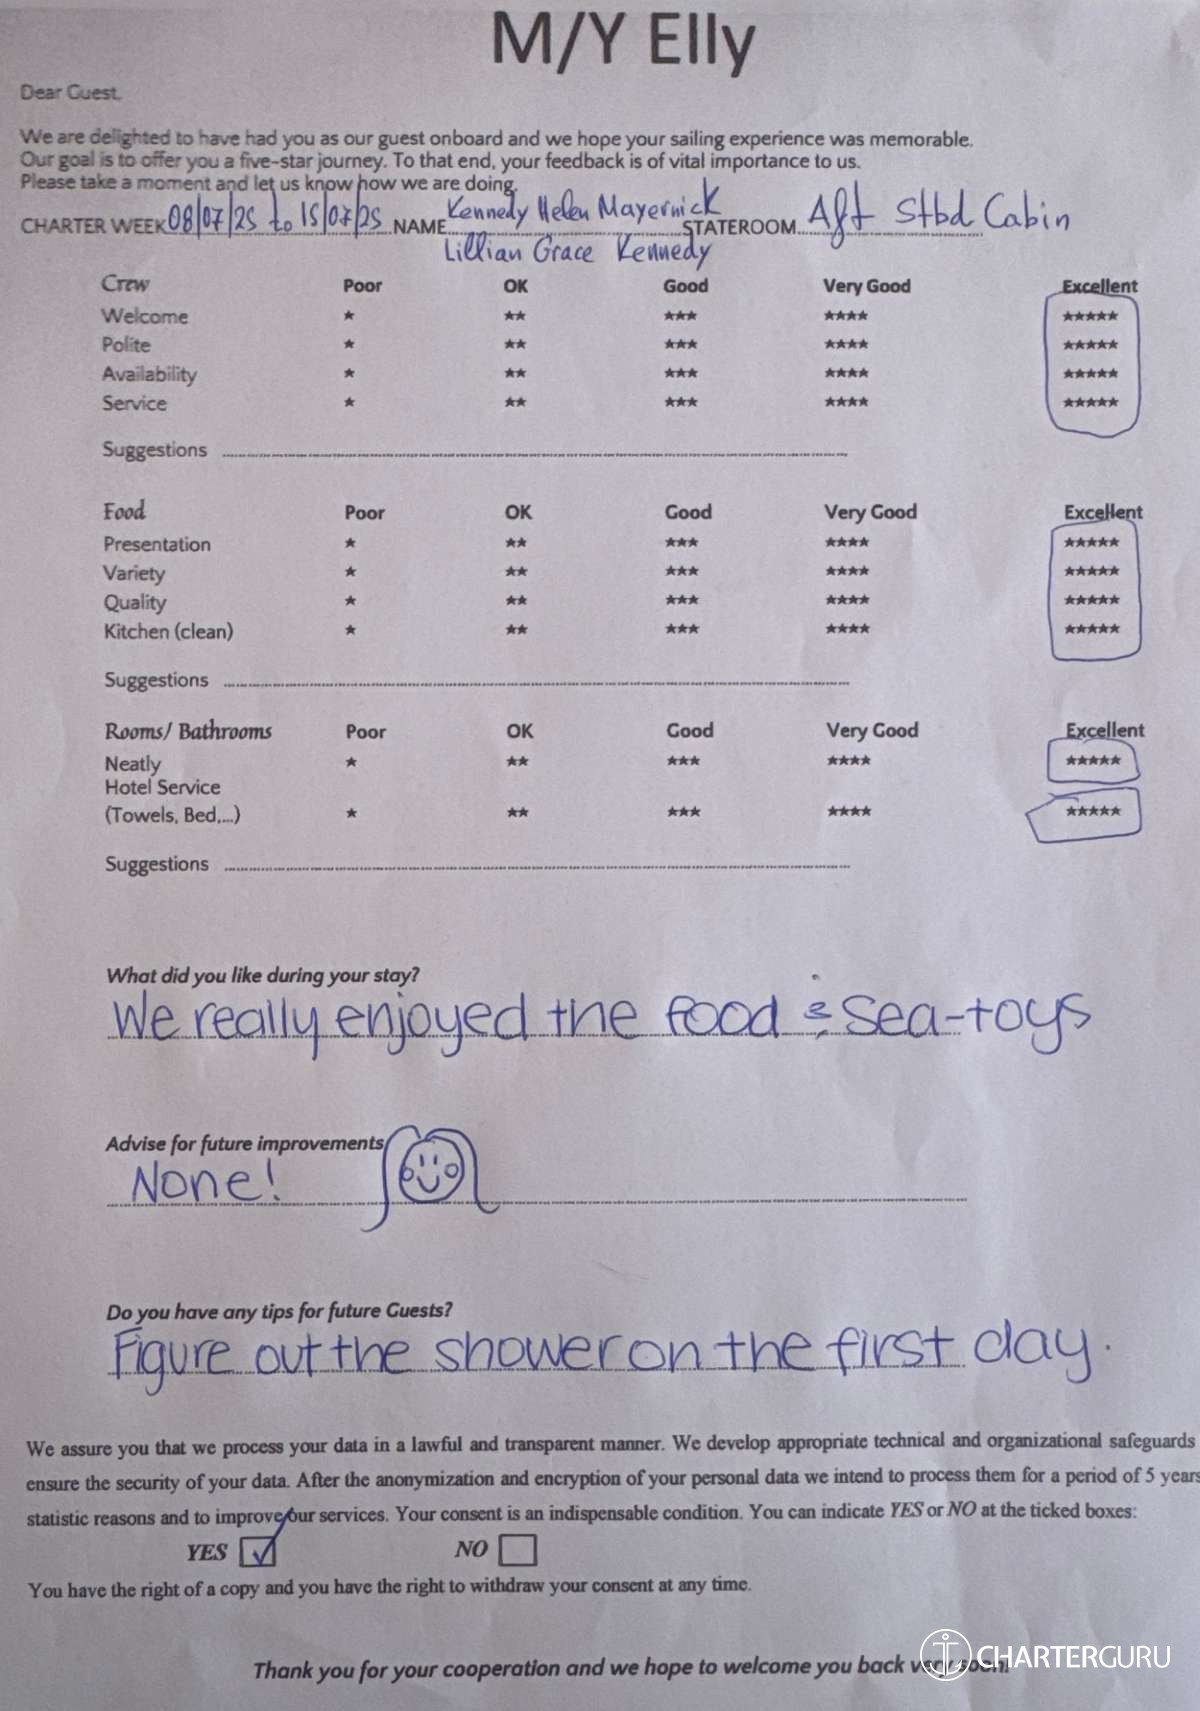 M/Y Elly
Dear Guest,
We are delighted to have had you as our guest onboard and we hope your sailing experience was memorable.
Our goal is to offer you a five-star journey. To that end, your feedback is of vital importance to us.
Please take a moment and let us know how we are doing.
CHARTER WEEK 08/07/25 to 15/07/25 NAME Kennedy Helen Mayernick STATEROOM Aft Stbd Cabin
Lillian Grace Kennedy
Crew Poor OK Good Very Good Excellent
Welcome ★ ★★ ★★★ ★★★★ ★★★★★
Polite ★ ★★ ★★★ ★★★★ ★★★★★
Availability ★ ★★ ★★★ ★★★★ ★★★★★
Service ★ ★★ ★★★ ★★★★ ★★★★★
Suggestions
Food Poor OK Good Very Good Excellent
Presentation ★ ★★ ★★★ ★★★★ ★★★★★
Variety ★ ★★ ★★★ ★★★★ ★★★★★
Quality ★ ★★ ★★★ ★★★★ ★★★★★
Kitchen (clean) ★ ★★ ★★★ ★★★★ ★★★★★
Suggestions
Rooms/ Bathrooms Poor OK Good Very Good Excellent
Neatly ★ ★★ ★★★ ★★★★ ★★★★★
Hotel Service
(Towels, Bed,...) ★ ★★ ★★★ ★★★★ ★★★★★
Suggestions
What did you like during your stay?
We really enjoyed the food & sea-toys
Advise for future improvements
None!
Do you have any tips for future Guests?
Figure out the shower on the first day.
We assure you that we process your data in a lawful and transparent manner. We develop appropriate technical and organizational safeguards
ensure the security of your data. After the anonymization and encryption of your personal data we intend to process them for a period of 5 years
statistic reasons and to improve our services. Your consent is an indispensable condition. You can indicate YES or NO at the ticked boxes:
YES NO
You have the right of a copy and you have the right to withdraw your consent at any time.
Thank you for your cooperation and we hope to welcome you back very soon!
CHARTERGURU